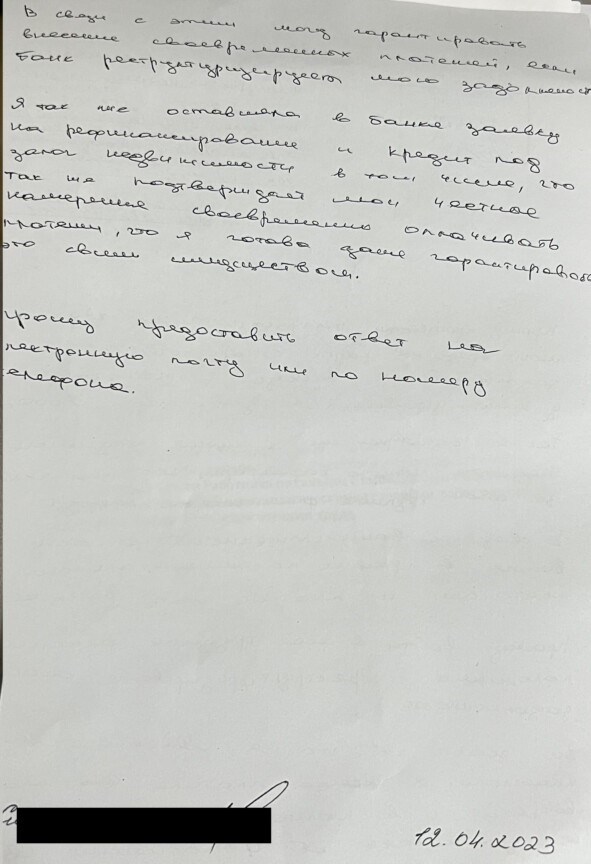 В связи с этим могу гарантировать
внесение своевременных платежей, если
банк реструктуризирует мою задолженост
Я так же оставляла в банке заявку
на рефинансирование и кредит под
залог недвижимости в том числе, что
так же подтверждает мои честные
намерения своевременно оплачивать
платежи, что я готова даже гарантировать
это своим имуществом.
рошу предоставить ответ на
лектронную почту или по номеру
елефона.
12.04.2023